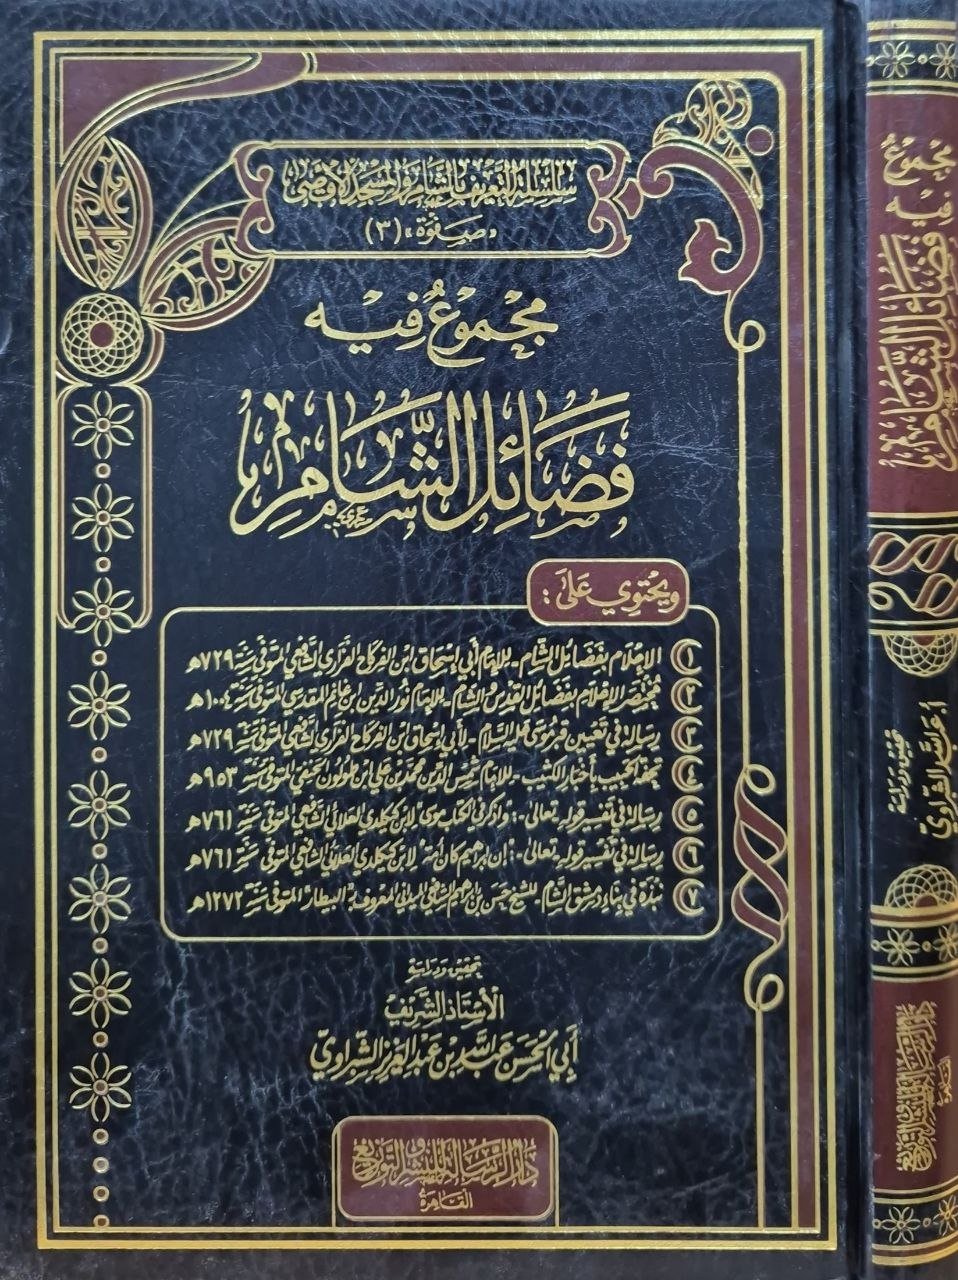 سلسلة التعريف بالشام والمسجد الأقصى
«صفوة» (٣)
مجموعٌ فيه
فضائل الشَّام
ويحتوي على:
١ الإعلام بفضائل الشام - للإمام أبي إسحاق ابن الفركاح الفزاري الشافعي المتوفى سنة ٧٢٩هـ
٢ مختصر الإعلام بفضائل القدس والشام - للإمام نور الدين ابن غانم المقدسي المتوفى سنة ١٠٠٤هـ
٣ رسالة في تعيين قبر موسى عليه السلام - لأبي إسحاق ابن الفركاح الفزاري الشافعي المتوفى سنة ٧٢٩هـ
٤ تحفة الحبيب بأخبار الكثيب - للإمام شمس الدين محمد بن علي ابن طولون الحنفي المتوفى سنة ٩٥٣هـ
٥ رسالة في تفسير قوله تعالى -: واذكر في الكتاب موسى لابن كيكلدي العلائي الشافعي المتوفى سنة ٧٦١هـ
٦ رسالة في تفسير قوله تعالى -: إن إبراهيم كان أمة لابن كيكلدي العلائي الشافعي المتوفى سنة ٧٦١هـ
٧ نبذة في بناء دمشق الشام - للشيخ حسن بن إبراهيم الشافعي الميداني المعروف بـ البيطار المتوفى سنة ١٢٧٢هـ
تحقيق ودراسة
الأستاذ الشريف
أبي الحسن عبد الله بن عبد العزيز الشبراوي
دار الرسالة للنشر والتوزيع
القاهرة
مجموعٌ فيه
فضائل الشَّام
تحقيق ودراسة
أ. عبد الله الشبراوي
دار الرسالة للنشر والتوزيع
القاهرة